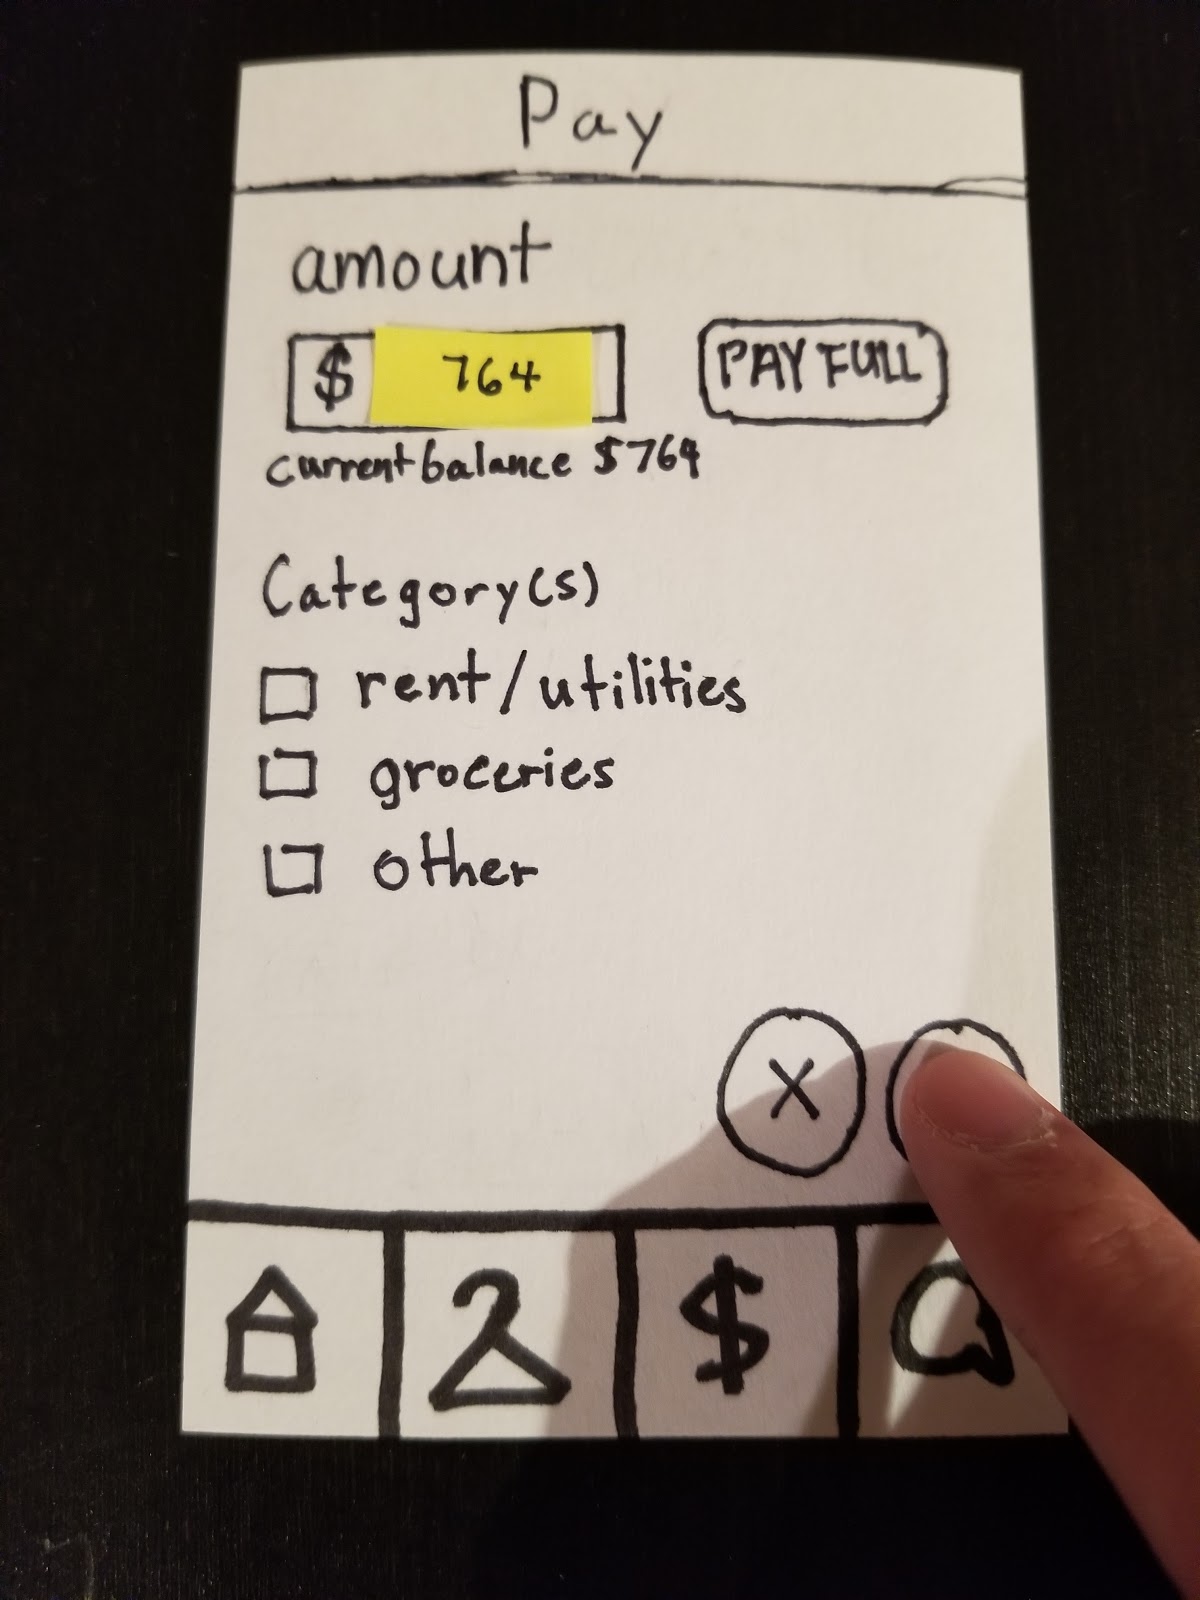 Pay
amount
$ 764 PAY FULL
current balance $764
Category(s)
rent/utilities
groceries
other
X
$